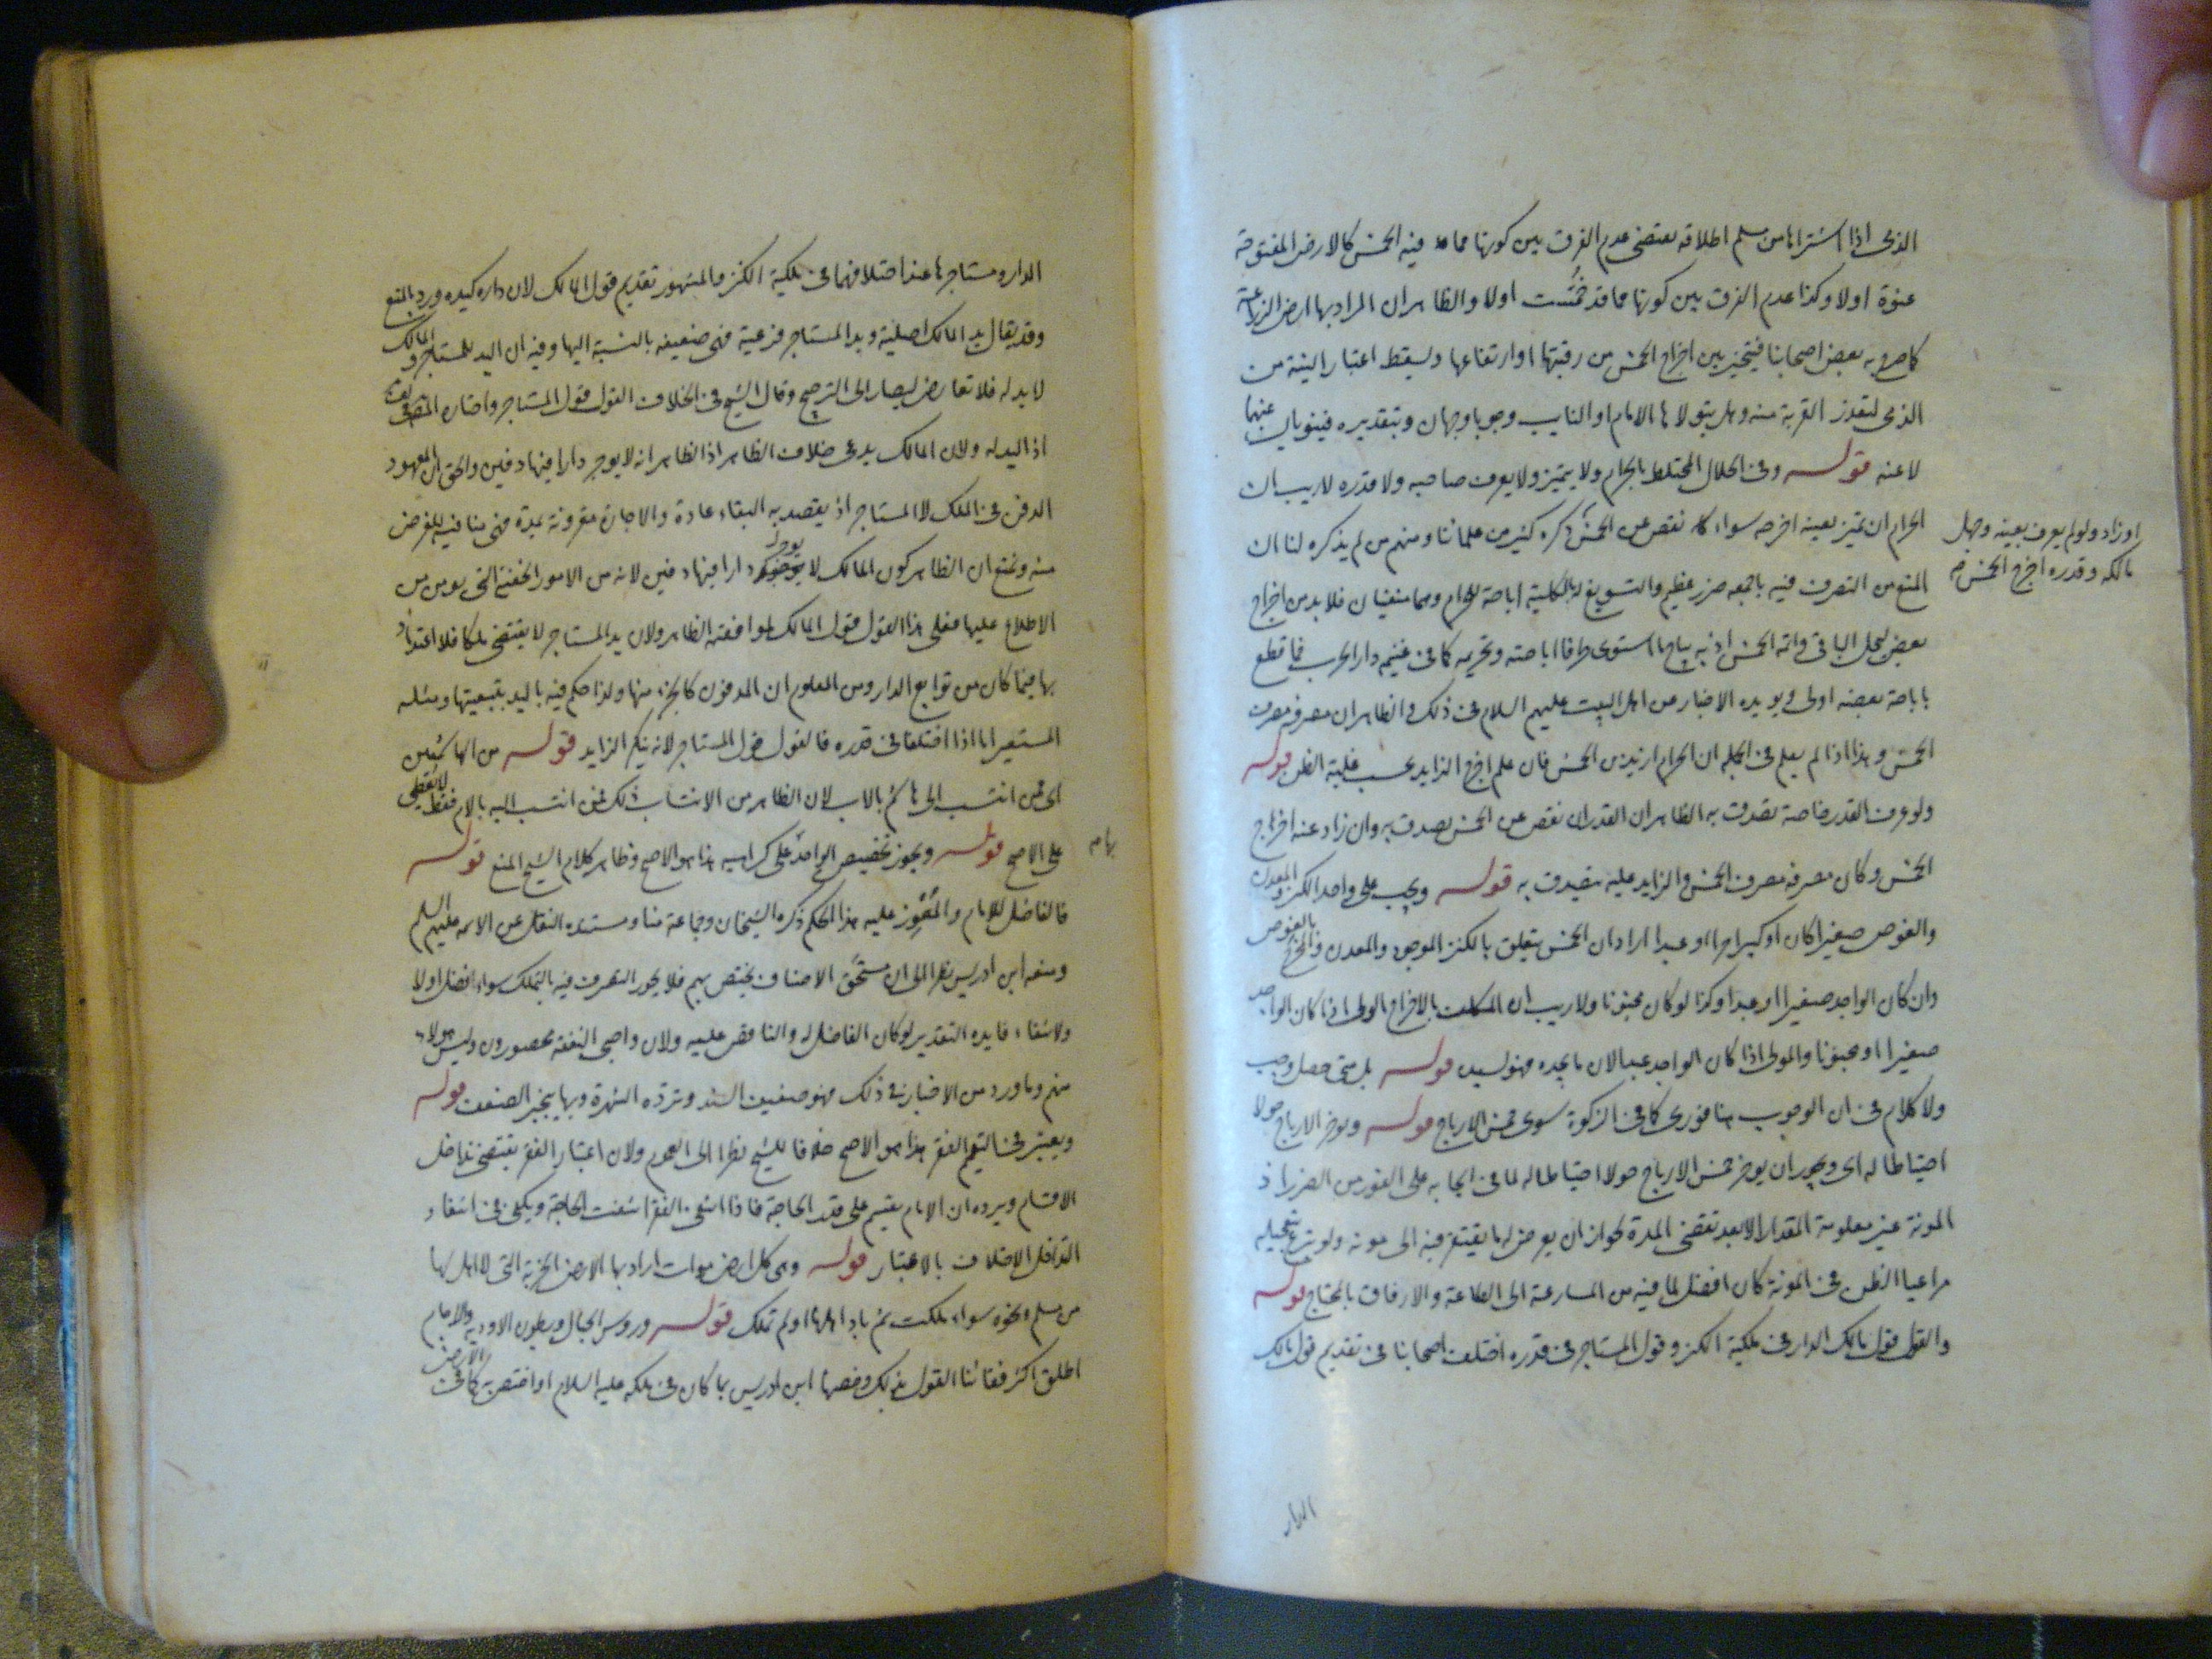 الذمى اذا اشتراها من مسلم اطلاقه يقتضى عدم الفرق بين كونها مما فيه الخمس كالارض المفتوحة
عنوة اولا وكذا عدم الفرق بين كونها مما قد خُمّست اولا والظاهر ان المراد بها ارض الزراعة
كما صرح به بعض اصحابنا فيتخير بين اخراج الخمس من رقبتها او ارتفاعها ويسقط اعتبار النية من
الذمى لتعذر القربة منه وهل يتولاها الامام او النايب وجوبا وجهان وبتقديره فينويان عنهما
لا عنه قوله وفى الحلال المختلط بالحرام ولا يتميز ولا يعرف صاحبه ولا قدره لا ريب ان
الحرام ان تميز بعينه اخرجه سواء كان نقص عن الخمس ذكره كثير من علمائنا ومنهم من لم يذكره لنا ان
او زاد ولو لم يعرف بعينه وجهل
مالكه وقدره اخرج الخمس
المنع من التصرف فيه باجمعه ضرر عظيم والتسويغ له بالكلية اباحة للحرام وهما منفيان فلا بد من اخراج
بعض ليحل الباقى وانه الخمس اذ به يباح ما استوى طرفا اباحته وتحريمه كما فى غنيم دار الحرب فما قطع
باباحة بعضه اولى ويويده الاخبار عن اهل البيت عليهم السلام فى ذلك والظاهر ان مصرفه مصرف
الخمس وهذا اذا لم يعلم فى الجملة ان الحرام ازيد من الخمس فان علم اخرج الزايد بحسب غلبة الظن قوله
ولو عرف القدر خاصة تصدق به الظاهر ان القدر ان نقص عن الخمس يصدق به وان زاد عنه اخراج
الخمس وكان مصرفه مصرف الخمس والزايد عليه يتصدق به قوله ويجب على واجد الكنز والمعدن
والغوص صغيرا كان او كبيرا حرا او عبدا اراد ان الخمس يتعلق بالكنز الموجود والمعدن والمخرج بالغوص
وان كان الواجد صغيرا او عبدا وكذا لو كان مجنونا ولا ريب ان المكلف بالاخراج الولى اذا كان الواجد
صغيرا او مجنونا والمولى اذا كان الواجد عبدا لان ما يجده فهو لسيده قوله بل متى حصل وجب
ولا كلام فى ان الوجوب هنا فورى كما فى الزكوة سوى خمس الارباح قوله ويوخر الارباح حولا
احتياطا له اى ويجوز ان يوخر خمس الارباح حولا احتياطا له لما فى ايجابه على الفور من الضرر اذ
المونة غير معلومة المقدار الا بعد تقضى المدة لجواز ان يعرض له ما يفتقر فيه الى مونه ولو تبرع بتعجيله
مراعيا الظن فى المونة كان افضل لما فيه من المسارعة الى الطاعة والارفاق بالمحتاج قوله
والقول قول مالك الدار فى ملكية الكنز وقول المستاجر فى قدره اختلف اصحابنا فى تقديم قول مالك
الدار
الدار ومستاجرها عند اختلافهما فى ملكية الكنز فالمشهور تقديم قول المالك لان داره كيده ورد بالمنع
وقد يقال يد المالك اصلية ويد المستاجر فرعية فهى ضعيفه بالنسبة اليها وفيه ان اليد للمستاجر والمالك
لا يد له فلا تعارض ليصار الى الترجيح وقال الشيخ فى الخلاف القول قول المستاجر واختاره المصنف
اذ اليد له ولان المالك يدعى خلاف الظاهر اذ الظاهر انه لا يوجر دارا فيها دفين والحق ان المعهود
الدفن فى الملك لا المستاجر اذ يقصد به البقاء عادة والاجارة مقرونة بمدة فهى منافيه للغرض
منه ونمنع ان الظاهر كون المالك لا يوجر دارا فيها دفين لانه من الامور الخفية التى يومن من
الاطلاع عليها فعلى هذا القول قول المالك لموافقته الظاهر ولان يد المستاجر لا يقتضى ملكا فلا اعتداد
بها فيما كان من توابع الدار ومن المعلوم ان المدفون كالجزء منها ولذا حكم فيه باليد بتبعيتها ومثله
المستعير اما اذا اختلفا فى قدره فالقول قول المستاجر لانه ينكر الزايد قوله من الهاشميين
اى ممن انتسب الى هاشم بالاب لان الظاهر من الانتساب ذلك فمن انتسب اليه بالام فقط لا يُعطى
على الاصح قوله ويجوز تخصيص الواحد على كراهيه هذا هو الاصح وظاهر كلام الشيخ المنع قوله
فالفاضل للامام والمُعْوِز عليه هذا الحكم ذكره الشيخان وجماعة منا ومستنده النقل عن الائمه عليهم السلم
ومنعه ابن ادريس نظرا الى ان مستحق الاصناف يختص بهم فلا يجوز التصرف فيه بالتملك سواء افضل اولا
ولانتفاء فايده التقدير لو كان الفاضل له والناقص عليه ولان واجبى النفقه محصورون وليس هولاء
منهم وما ورد من الاخبار فى ذلك فهو ضعيف السند وتردّه الشهرة وبها ينجبر الضعف قوله
ويعتبر فى اليتيم الفقر هذا هو الاصح خلافا للشيخ نظرا الى العموم ولان اعتبار الفقر يقتضى تداخل
الاقسام ويرده ان الامام يقسم على قدر الحاجة فاذا انتفى الفقر انتفت الحاجة ويكفى فى انتفاء
التداخل الاختلاف بالاعتبار قوله وهى كل ارض موات اراد بها الارض الخربة التى لا اهل لها
من مسلم ونحوه سواء ملكت ثم باد اهلها او لم تملك قوله وروس الجبال وبطون الاودية والاجام
اطلق اكثر فقهائنا القول بذلك وخصها ابن ادريس بما كان فى ملكه عليه السلام او اختص به كما فى الارض